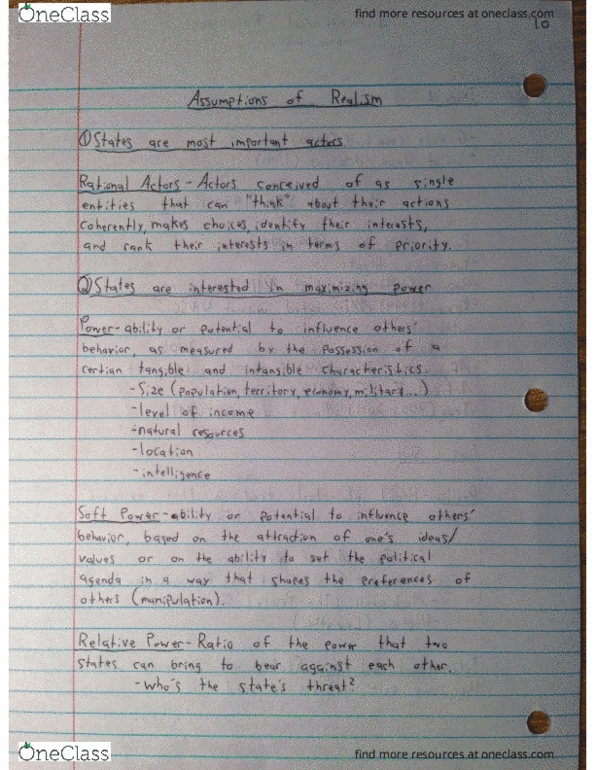 OneClass
find more resources at oneclass.com
10
Assumptions of Realism
① States are most important actors
Rational Actors - Actors conceived of as single
entities that can "think" about their actions
coherently, makes choices, identify their interests,
and rank their interests in terms of priority.
② States are interested in maximizing power
Power - ability or potential to influence others'
behavior, as measured by the possession of a
certian tangible and intangible characteristics.
- Size (population, territory, economy, military...)
- level of income
- natural resources
- location
- intelligence
Soft Power - ability or potential to influence others'
behavior, based on the attraction of one's ideas/
values or on the ability to set the political
agenda in a way that shapes the preferences of
others (manipulation).
Relative Power - Ratio of the power that two
states can bring to bear against each other.
- Who's the state's threat?
OneClass
find more resources at oneclass.com